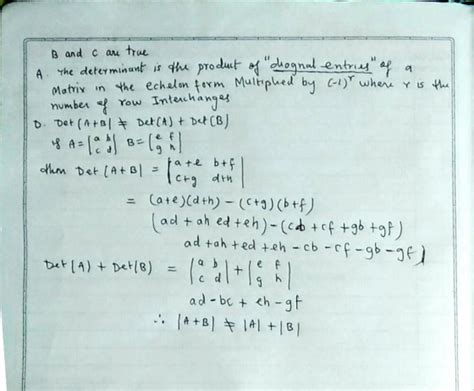 B and C are true
A. The determinant is the product of "diognal entries" of a
Matrix in the echelon form Multiplied by (-1)^r where r is the
number of row Interchanges
D. Det (A+B) ≠ Det(A) + Det(B)
if A = |a b| B = |e f|
|c d| |g h|
then Det (A+B) = |a+e b+f|
|c+g d+h|
= (a+e)(d+h) - (c+g)(b+f)
(ad + ah ed + eh) - (cb + cf + gb + gf)
ad + ah + ed + eh - cb - cf - gb - gf)
Det (A) + Det(B) = |a b| + |e f|
|c d| |g h|
ad - bc + eh - gf
∴ |A+B| ≠ |A| + |B|